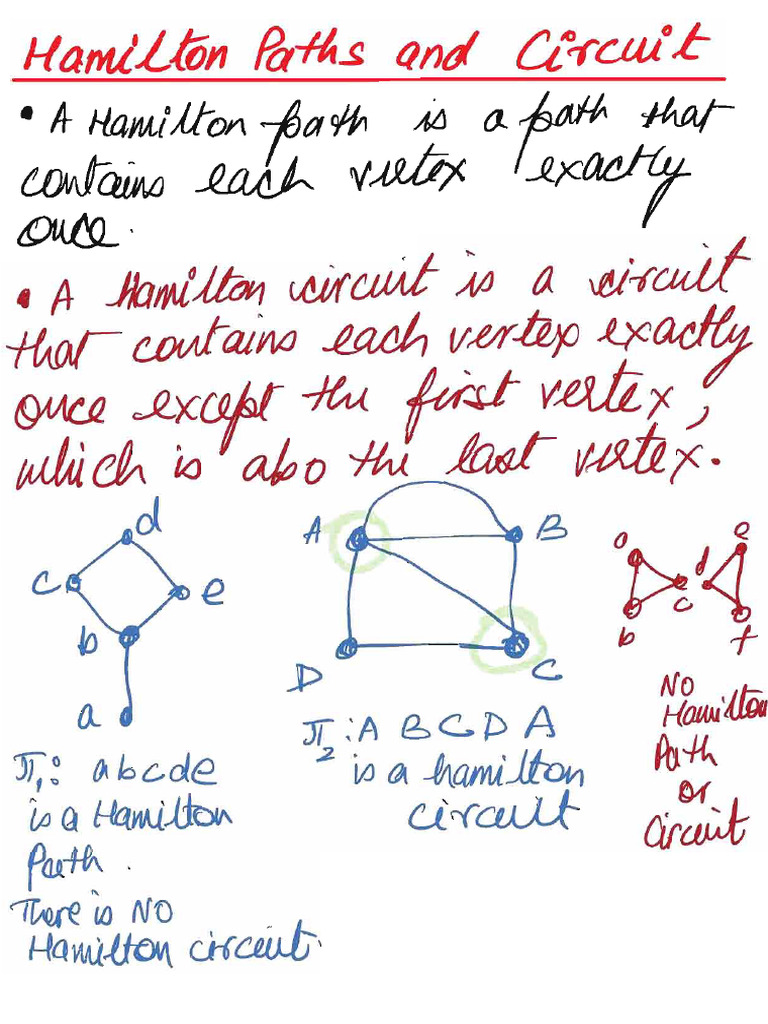 Hamilton Paths and Circuit
• A Hamilton path is a path that
contains each vertex exactly
once.
• A Hamilton circuit is a circuit
that contains each vertex exactly
once except the first vertex,
which is also the last vertex.
d
c
e
b
a
π₁: abcde
is a Hamilton
Path.
There is NO
Hamilton circuit.
A
B
D
C
π₂: A B C D A
is a hamilton
circuit
a
d
e
c
b
f
NO
Hamilton
Path
or
Circuit